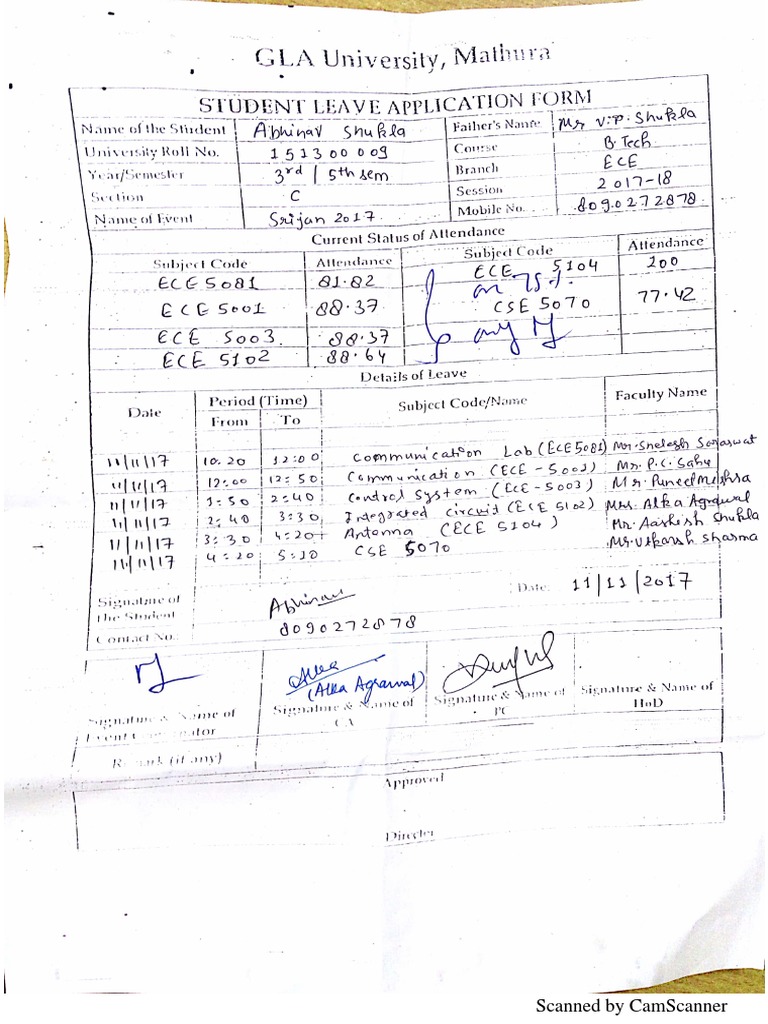 GLA University, Mathura
STUDENT LEAVE APPLICATION FORM
Name of the Student Abhinav Shukla Father's Name Mr V.P. Shukla
University Roll No. 151300009 Course B.Tech
Year/Semester 3rd / 5th sem Branch ECE
Section C Session 2017-18
Name of Event Srijan 2017. Mobile No. 8090272878.
Current Status of Attendance
Subject Code Attendance Subject Code Attendance
ECE 5081 81.82 ECE 5104 100
ECE 5001 88.37 CSE 5070 77.42
ECE 5003. 88.37
ECE 5102 88.64
Details of Leave
Date Period (Time) Subject Code/Name Faculty Name
From To
11/11/17 10.20 12:00 Communication Lab (ECE 5081) Mr. Saraswat
11/11/17 12:00 12:50 Communication (ECE - 5001) Mr. P.C. Sahu
11/11/17 1:50 2:40 Control System (ECE - 5003) Mr. Puneet Mishra
11/11/17 2:40 3:30 Integrated circuit (ECE 5102) Mrs. Alka Agrawal
11/11/17 3:30 4:20 Antenna (ECE 5104) Mr. Aashish Shukla
11/11/17 4:20 5:10 CSE 5070 Mr. Utkarsh Sharma
Signature of the Student Abhinav Date: 11/11/2017
Contact No.: 8090272878
(Alka Agrawal)
Signature & Name of Event Coordinator Signature & Name of CA Signature & Name of PC Signature & Name of HoD
Remark (if any)
Approved
Director
Scanned by CamScanner